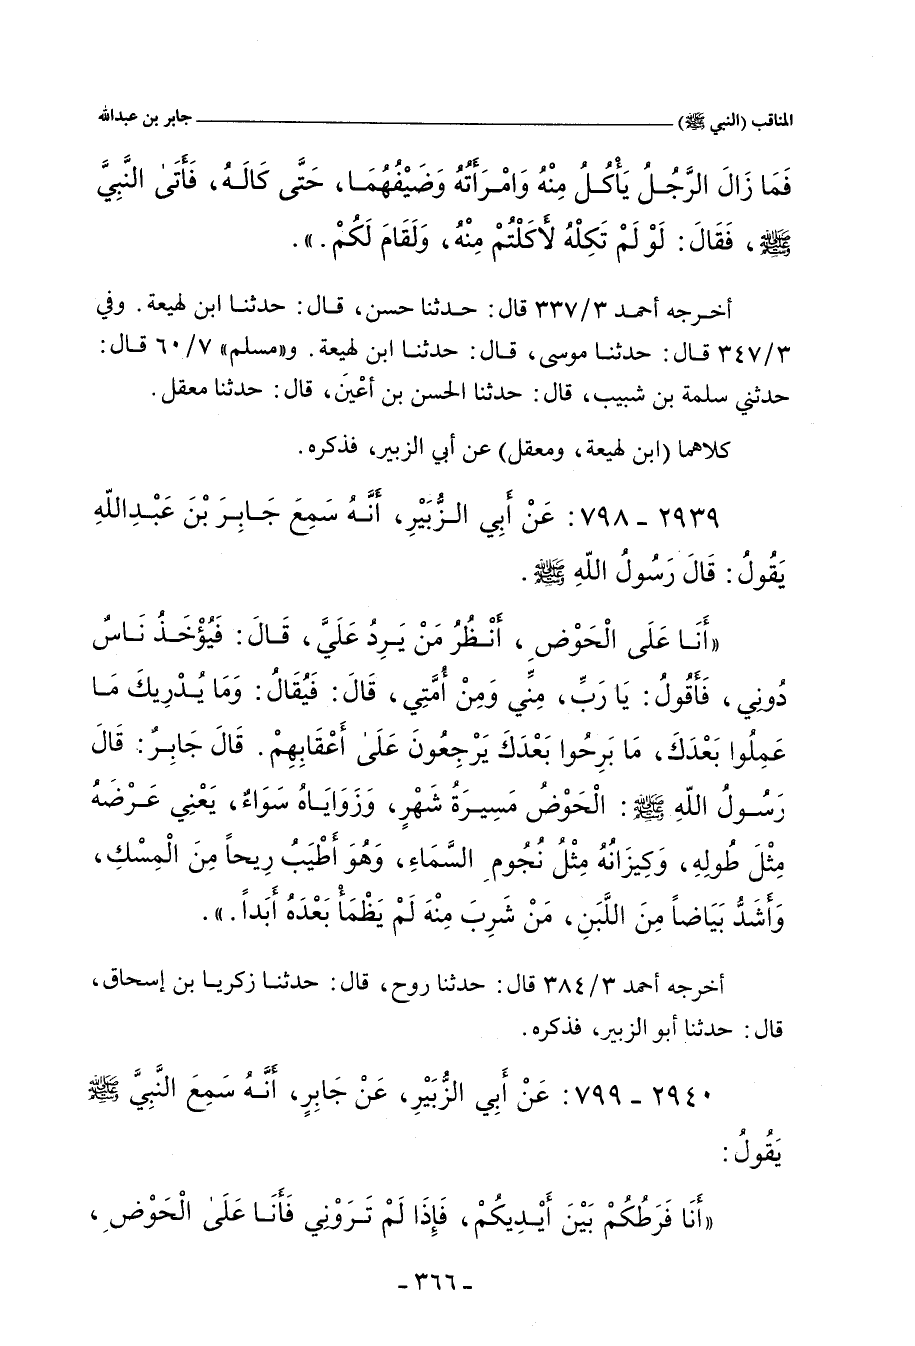 المناقب (النبي ﷺ) ـــــــــــــــــــــ جابر بن عبدالله
فَمَا زَالَ الرَّجُلُ يَأْكُلُ مِنْهُ وَامْرَأَتُهُ وَضَيْفُهُمَا، حَتَّى كَالَهُ، فَأَتَىٰ النَّبِيَّ
ﷺ، فَقَالَ: لَوْ لَمْ تَكِلْهُ لأَكَلْتُمْ مِنْهُ، وَلَقَامَ لَكُمْ.».
أخرجه أحمد ٣/٣٣٧ قال: حدثنا حسن، قال: حدثنا ابن لهيعة. وفي
٣/٣٤٧ قال: حدثنا موسى، قال: حدثنا ابن لهيعة. و«مسلم» ٧/٦٠ قال:
حدثني سلمة بن شبيب، قال: حدثنا الحسن بن أعْينَ، قال: حدثنا معقل.
كلاهما (ابن لهيعة، ومعقل) عن أبي الزبير، فذكره.
٢٩٣٩ ـ ٧٩٨: عَنْ أَبِي الزُّبَيْرِ، أَنَّهُ سَمِعَ جَابِرَ بْنَ عَبْدِاللَّهِ
يَقُولُ: قَالَ رَسُولُ اللَّهِ ﷺ.
«أَنَا عَلَى الْحَوْضِ، أَنْظُرُ مَنْ يَرِدُ عَلَيَّ، قَالَ: فَيُؤْخَذُ نَاسٌ
دُونِي، فَأَقُولُ: يَا رَبِّ، مِنِّي وَمِنْ أُمَّتِي، قَالَ: فَيُقَالُ: وَمَا يُدْرِيكَ مَا
عَمِلُوا بَعْدَكَ، مَا بَرِحُوا بَعْدَكَ يَرْجِعُونَ عَلَىٰ أَعْقَابِهِمْ. قَالَ جَابِرٌ: قَالَ
رَسُولُ اللَّهِ ﷺ: الْحَوْضُ مَسِيرَةُ شَهْرٍ، وَزَوَايَاهُ سَوَاءٌ، يَعْنِي عَرْضَهُ
مِثْلَ طُولِهِ، وَكِيزَانُهُ مِثْلُ نُجُومِ السَّمَاءِ، وَهُوَ أَطْيَبُ رِيحاً مِنَ الْمِسْكِ،
وَأَشَدُّ بَيَاضاً مِنَ اللَّبَنِ، مَنْ شَرِبَ مِنْهُ لَمْ يَظْمَأْ بَعْدَهُ أَبَداً.».
أخرجه أحمد ٣/٣٨٤ قال: حدثنا روح، قال: حدثنا زكريا بن إسحاق،
قال: حدثنا أبو الزبير، فذكره.
٢٩٤٠ ـ ٧٩٩: عَنْ أَبِي الزُّبَيْرِ، عَنْ جَابِرٍ، أَنَّهُ سَمِعَ النَّبِيَّ ﷺ
يَقُولُ:
«أَنَا فَرَطُكُمْ بَيْنَ أَيْدِيكُمْ، فَإِذَا لَمْ تَرَوْنِي فَأَنَا عَلَىٰ الْحَوْضِ،
ـ ٣٦٦ ـ